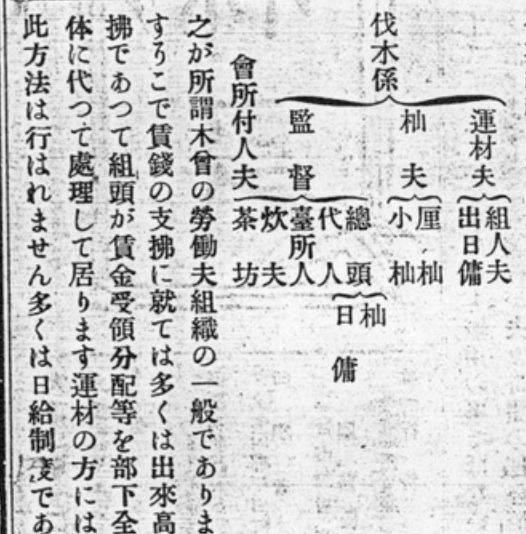 伐木係
運材夫
組人夫
出日傭
杣夫
厘杣
小杣
監督
總頭
杣
日傭
代人
臺所人
炊夫
茶坊
會所付人夫
之が所謂木曾の勞働夫組織の一般でありま
すそこで賃錢の支拂に就ては多くは出來高
拂であつて組頭が賃金受領分配等を部下全
体に代つて處理して居ります運材の方には
此方法は行はれません多くは日給制度であ